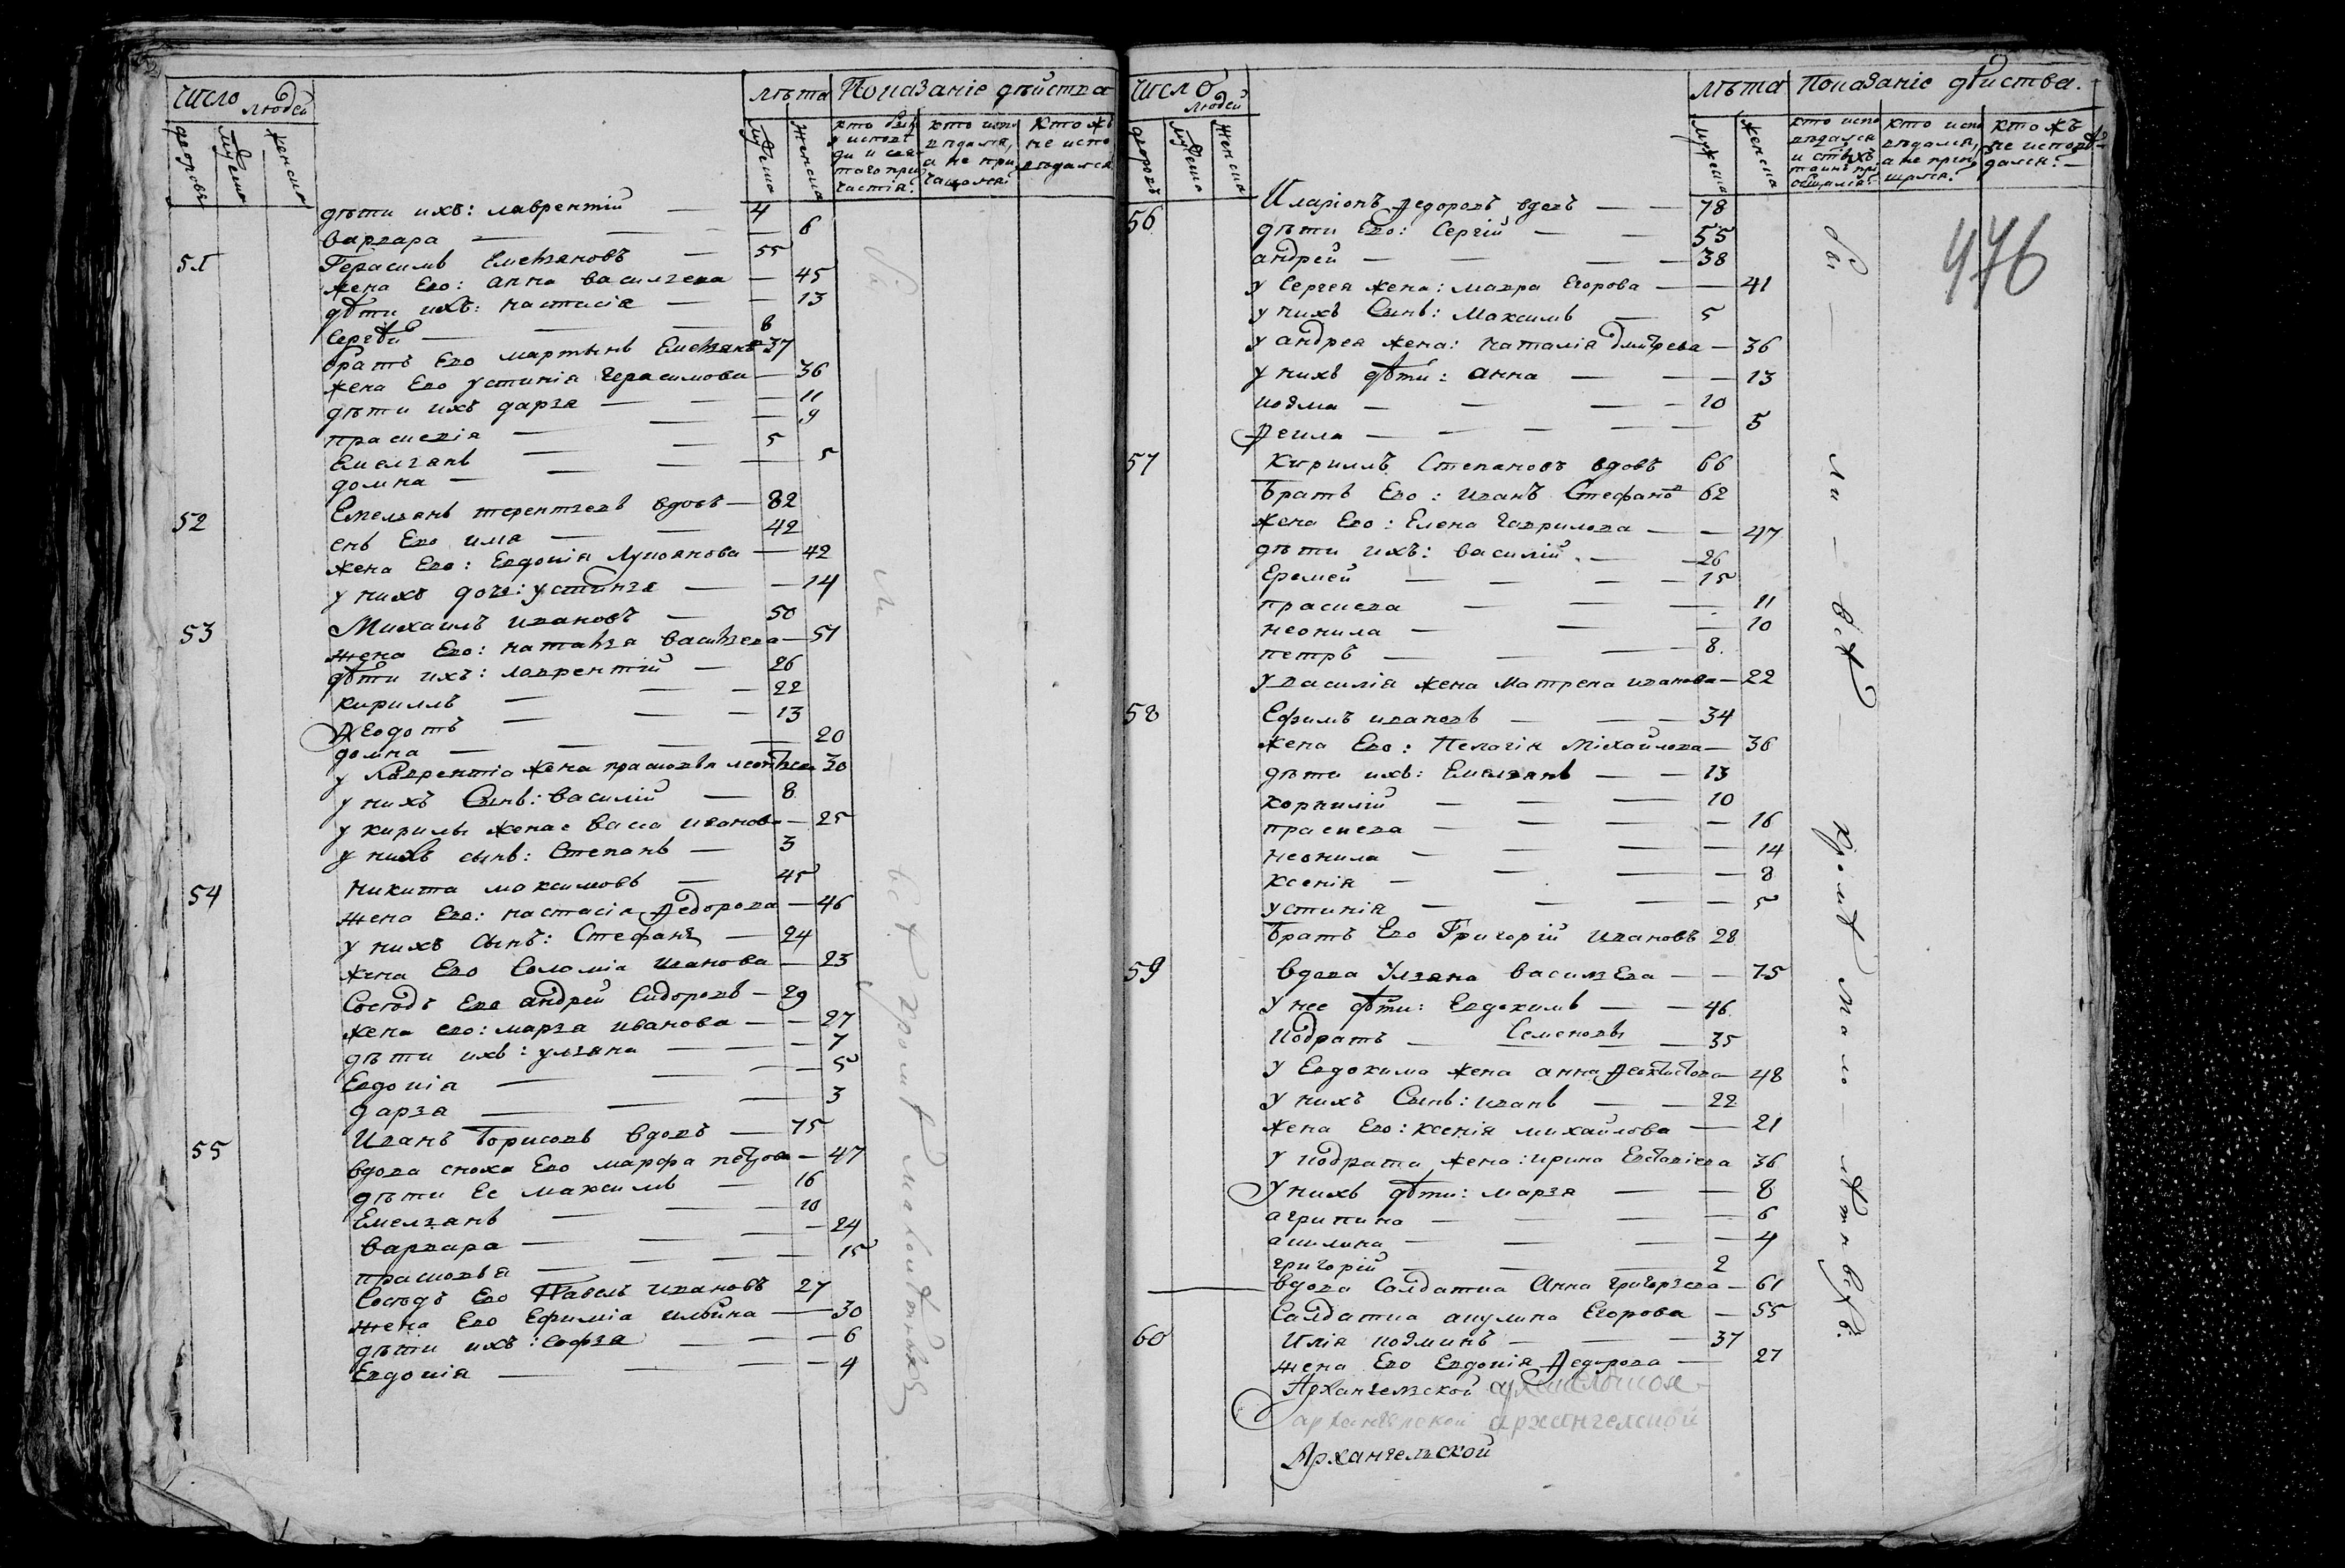 Число людей
лѣта
Показаніе дѣйства
дворовъ
мужеска
женска
мужеска
женска
кто был у исповѣди и святаго причастія?
кто испо вѣдался, а не при чащался?
кто жъ не испо вѣдался
дѣти ихъ: лаврентій — 4
варвара — 6
51 Герасимъ Емельяновъ — 55
жена Его: анна василгева — 45
дѣти ихъ: настасія — 13
Сергѣй — 8
братъ Его мартынъ Емельяновъ 37
жена Его устинія герасимова — 36
дѣти ихъ дарья — 11
праскевія — 9
Емельянъ — 5
домна — 5
52 Емельянъ терентьевъ вдовъ — 82
снъ Его илія — 42
жена Его: Евдокія Лукоянова — 42
у нихъ дочь: устинья — 14
53 Михаилъ ивановъ — 50
жена Его: наталья васильева — 51
дѣти ихъ: лаврентій — 26
кириллъ — 22
Ѳеодотъ — 13
домна — 20
у Лаврентіа жена прасковья леонтьева 30
у нихъ Сынъ: василій — 8
у кирилы жена васа иванова — 25
у нихъ сынъ: Степанъ — 3
54 никита максимовъ — 45
жена Его: настасія Ѳедорова — 46
у нихъ сынъ: Стефанъ — 24
жена Его Соломіа иванова — 23
Сосѣдъ Его андрей Сидоровъ — 29
жена его: марья иванова — 27
дѣти ихъ: ульяна — 7
Евдокія — 5
дарья — 3
55 Иванъ борисовъ вдовъ — 75
вдова сноха Его марфа петрова — 47
дѣти Ее максимъ — 16
Емельянъ — 10
варвара — 24
прасковья — 15
Сосѣдъ Его Павелъ ивановъ 27
жена Его Ефиміа ильина — 30
дѣти ихъ: софья — 6
Евдокія — 4
бы — ли — всѣ кромѣ малолѣтныхъ
Число людей
лѣта
Показаніе дѣйства.
дворовъ
мужеска
женска
мужеска
женска
кто испо вѣдался и стыхъ таинъ пр общался?
кто испо вѣдался, а не прич щался?
кто жъ не исповѣ дался? —
476
56 Иларіонъ Ѳедоровъ вдовъ — 78
дѣти Его: Сергій — 55
андрей — 38
у Сергея жена: мавра Егорова — 41
у нихъ Сынъ: Максимъ — 5
у андрея жена: наталія дмитрева — 36
у нихъ дѣти: анна — 13
козма — 10
Ѳекла — 5
57 Кириллъ Степановъ вдовъ 66
братъ Его: иванъ Стефановъ 62
жена Его: Елена гаврилова — 47
дѣти ихъ: василій — 26
Еремей — 15
праскева — 11
неонила — 10
петръ — 8
у василія жена матрена иванова — 22
58 Ефимъ ивановъ — 34
жена Его: Пелагія Міхайлова — 36
дѣти ихъ: Емельянъ — 13
корнилій — 10
праскева — 16
неонила — 14
ксенія — 8
устинія — 5
братъ Его Григорій ивановъ 28
59 вдова Ульяна васильева — 75
у нее дѣти: Евдокимъ — 46
кодратъ — Семеновы — 35
у Евдокима жена анна Ѳеоктистова — 48
у нихъ Сынъ: иванъ — 22
жена Его: ксенія михайлова — 21
у кодрата жена: ирина Евстафіева 36
у нихъ дѣти: марья — 8
агрипина — 6
акилина — 4
григорій — 2
вдова Солдатка Анна григорьева — 61
Солдатка акулина Егорова — 55
60 Илія козминъ — 37
жена Его Евдокія Ѳедорова — 27
Архангельской архангельской
архангельской архангелской
Архангельской
бы — ли — всѣ — кромѣ мало — лѣтнихъ.